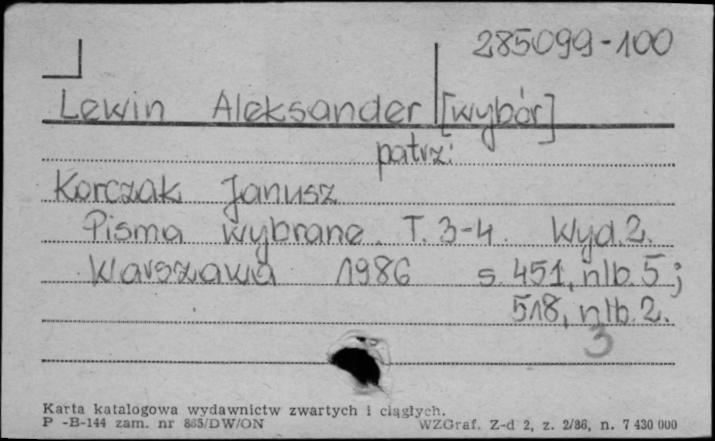 285099-100
Lewin Aleksander [wybór]
patrz:
Korczak Janusz
Pisma wybrane. T. 3-4. Wyd. 2.
Warszawa 1986 s. 451, nlb. 5;
518, nlb. 2.
3
Karta katalogowa wydawnictw zwartych i ciągłych.
P -B-144 zam. nr 865/DW/ON WZGraf. Z-d 2, z. 2/86, n. 7 430 000